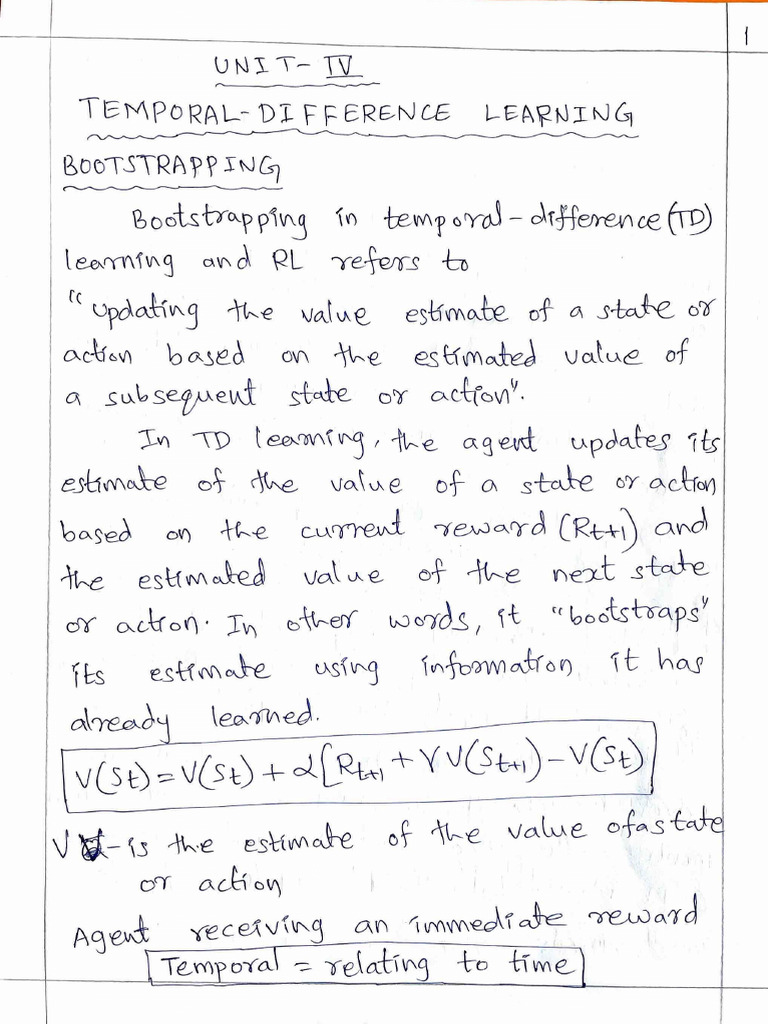 1
UNIT-IV
TEMPORAL-DIFFERENCE LEARNING
BOOTSTRAPPING
Bootstrapping in temporal-difference (TD)
learning and RL refers to
"updating the value estimate of a state or
action based on the estimated value of
a subsequent state or action".
In TD learning, the agent updates its
estimate of the value of a state or action
based on the current reward (Rt+1) and
the estimated value of the next state
or action. In other words, it "bootstraps"
its estimate using information it has
already learned.
V(St) = V(St) + α[Rt+1 + γV(St+1) - V(St)
V - is the estimate of the value of a state
or action
Agent receiving an immediate reward
Temporal = relating to time